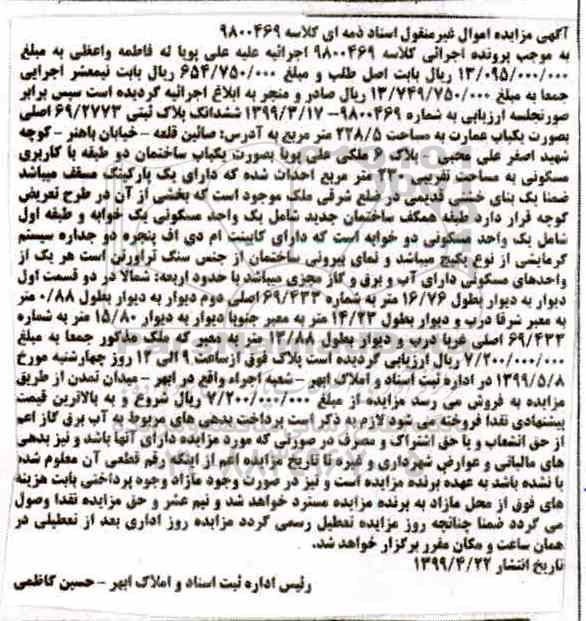 آگهی مزایده اموال غیرمنقول اسناد ذمه ای کلاسه ۹۸۰۰۴۶۹
به موجب پرونده اجرائی کلاسه ۹۸۰۰۴۶۹ اجرائیه علیه علی پویا له فاطمه واعظی به مبلغ
۱۳/۰۹۵/۰۰۰/۰۰۰ ریال بابت اصل طلب و مبلغ ۶۵۴/۷۵۰/۰۰۰ ریال بابت نیمعشر اجرایی
جمعا به مبلغ ۱۳/۷۴۹/۷۵۰/۰۰۰ ریال صادر و منجر به ابلاغ اجرائیه گردیده است سپس برابر
صورتجلسه ارزیابی به شماره ۹۸۰۰۴۶۹-۱۳۹۹/۳/۱۷ ششدانگ پلاک ثبتی ۶۹/۲۷۷۳ اصلی
بصورت یکباب عمارت به مساحت ۲۲۸/۵ متر مربع به آدرس: صائین قلعه - خیابان باهنر - کوچه
شهید اصغر علی محبی - پلاک ۶ ملکی علی پویا بصورت یکباب ساختمان دو طبقه با کاربری
مسکونی به مساحت تقریبی ۲۳۰ متر مربع احداث شده که دارای یک پارکینگ مسقف میباشد
ضمنا یک بنای خشتی قدیمی در ضلع شرقی ملک موجود است که بخشی از آن در طرح تعریض
کوچه قرار دارد طبقه همکف ساختمان جدید شامل یک واحد مسکونی یک خوابه و طبقه اول
شامل یک واحد مسکونی دو خوابه است که دارای کابینت ام دی اف پنجره دو جداره سیستم
گرمایشی از نوع پکیج میباشد و نمای بیرونی ساختمان از جنس سنگ تراورتن است هر یک از
واحدهای مسکونی دارای آب و برق و گاز مجزی میباشد با حدود اربعه: شمالا در دو قسمت اول
دیوار به دیوار بطول ۱۶/۷۶ متر به شماره ۶۹/۴۳۳ اصلی دوم دیوار به دیوار بطول ۰/۸۸ متر
به معبر شرقا درب و دیوار بطول ۱۴/۲۳ متر به معبر جنوبا دیوار به دیوار ۱۵/۸۰ متر به شماره
۶۹/۴۳۳ اصلی غربا درب و دیوار بطول ۱۳/۸۸ متر به معبر که ملک مذکور جمعا به مبلغ
۷/۲۰۰/۰۰۰/۰۰۰ ریال ارزیابی گردیده است پلاک فوق ازساعت ۹ الی ۱۲ روز چهارشنبه مورخ
۱۳۹۹/۵/۸ در اداره ثبت اسناد و املاک ابهر - شعبه اجراء واقع در ابهر - میدان تمدن از طریق
مزایده به فروش می رسد مزایده از مبلغ ۷/۲۰۰/۰۰۰/۰۰۰ ریال شروع و به بالاترین قیمت
پیشنهادی نقدا فروخته می شود لازم به ذکر است پرداخت بدهی های مربوط به آب برق گاز اعم
از حق انشعاب و یا حق اشتراک و مصرف در صورتی که مورد مزایده دارای آنها باشد و نیز بدهی
های مالیاتی و عوارض شهرداری و غیره تا تاریخ مزایده اعم از اینکه رقم قطعی آن معلوم شده
یا نشده باشد به عهده برنده مزایده است و نیز در صورت وجود مازاد وجوه پرداختی بابت هزینه
های فوق از محل مازاد به برنده مزایده مسترد خواهد شد و نیم عشر و حق مزایده نقدا وصول
می گردد ضمنا چنانچه روز مزایده تعطیل رسمی گردد مزایده روز اداری بعد از تعطیلی در
همان ساعت و مکان مقرر برگزار خواهد شد.
تاریخ انتشار ۱۳۹۹/۴/۲۲
رئیس اداره ثبت اسناد و املاک ابهر - حسین کاظمی